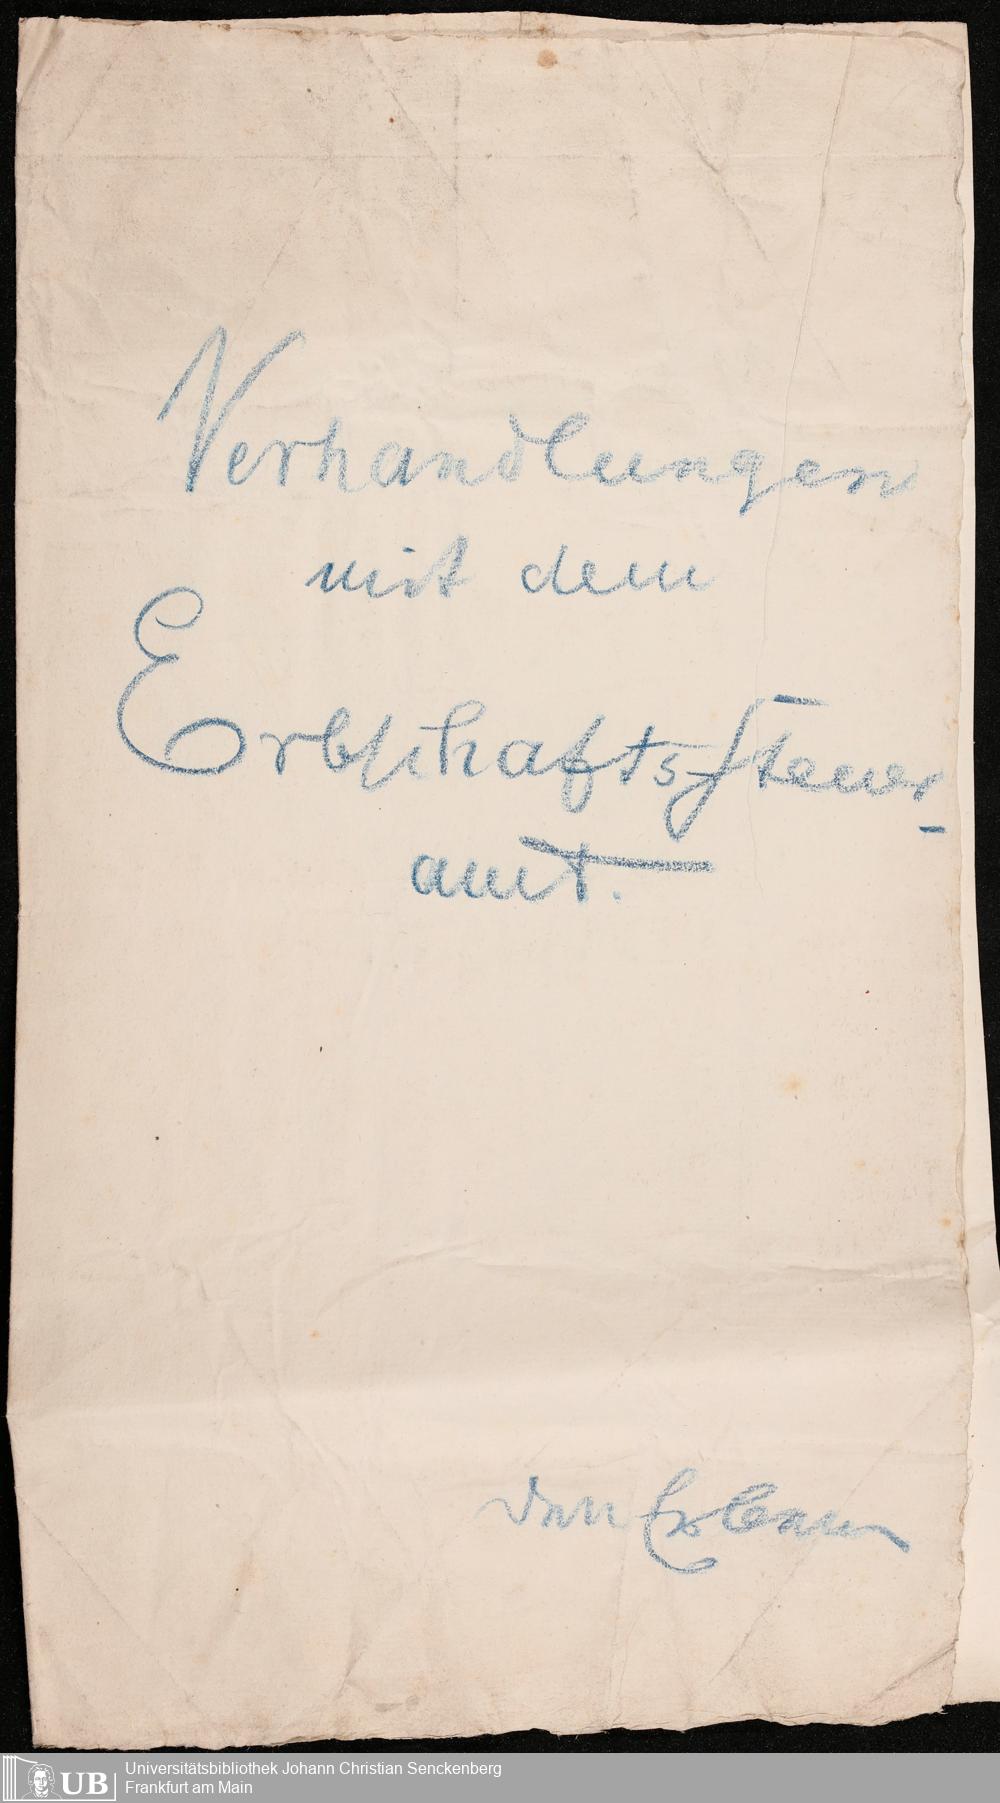 Verhandlungen
mit dem
Erbschaftssteuer-
amt.
den Erben
UB
Universitätsbibliothek Johann Christian Senckenberg
Frankfurt am Main